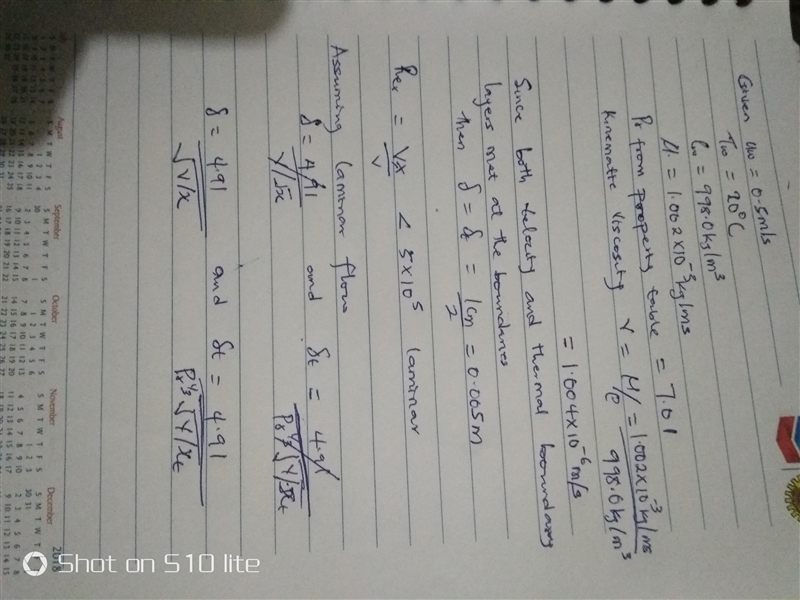 Given u∞ = 0.5m/s
T∞ = 20°C
ρ∞ = 998.0kg/m³
μ = 1.002×10⁻³kg/ms
Pr from property table = 7.01
Kinematic viscosity ν = μ/ρ = 1.002×10⁻³kg/ms / 998.0kg/m³
= 1.004×10⁻⁶m/s
Since both velocity and thermal boundary
layers met at the boundaries
then δ = δt = 1cm/2 = 0.005m
Rex = Vx/ν < 5×10⁵ laminar
Assuming laminar flow
δ = 4.91/ν/√x and δt = 4.91/Pr^⅓√ν/√xt
δ = 4.91/√V/x and δt = 4.91/Pr^⅓√V/xt
August
September
October
November
December
2018
Shot on S10 lite